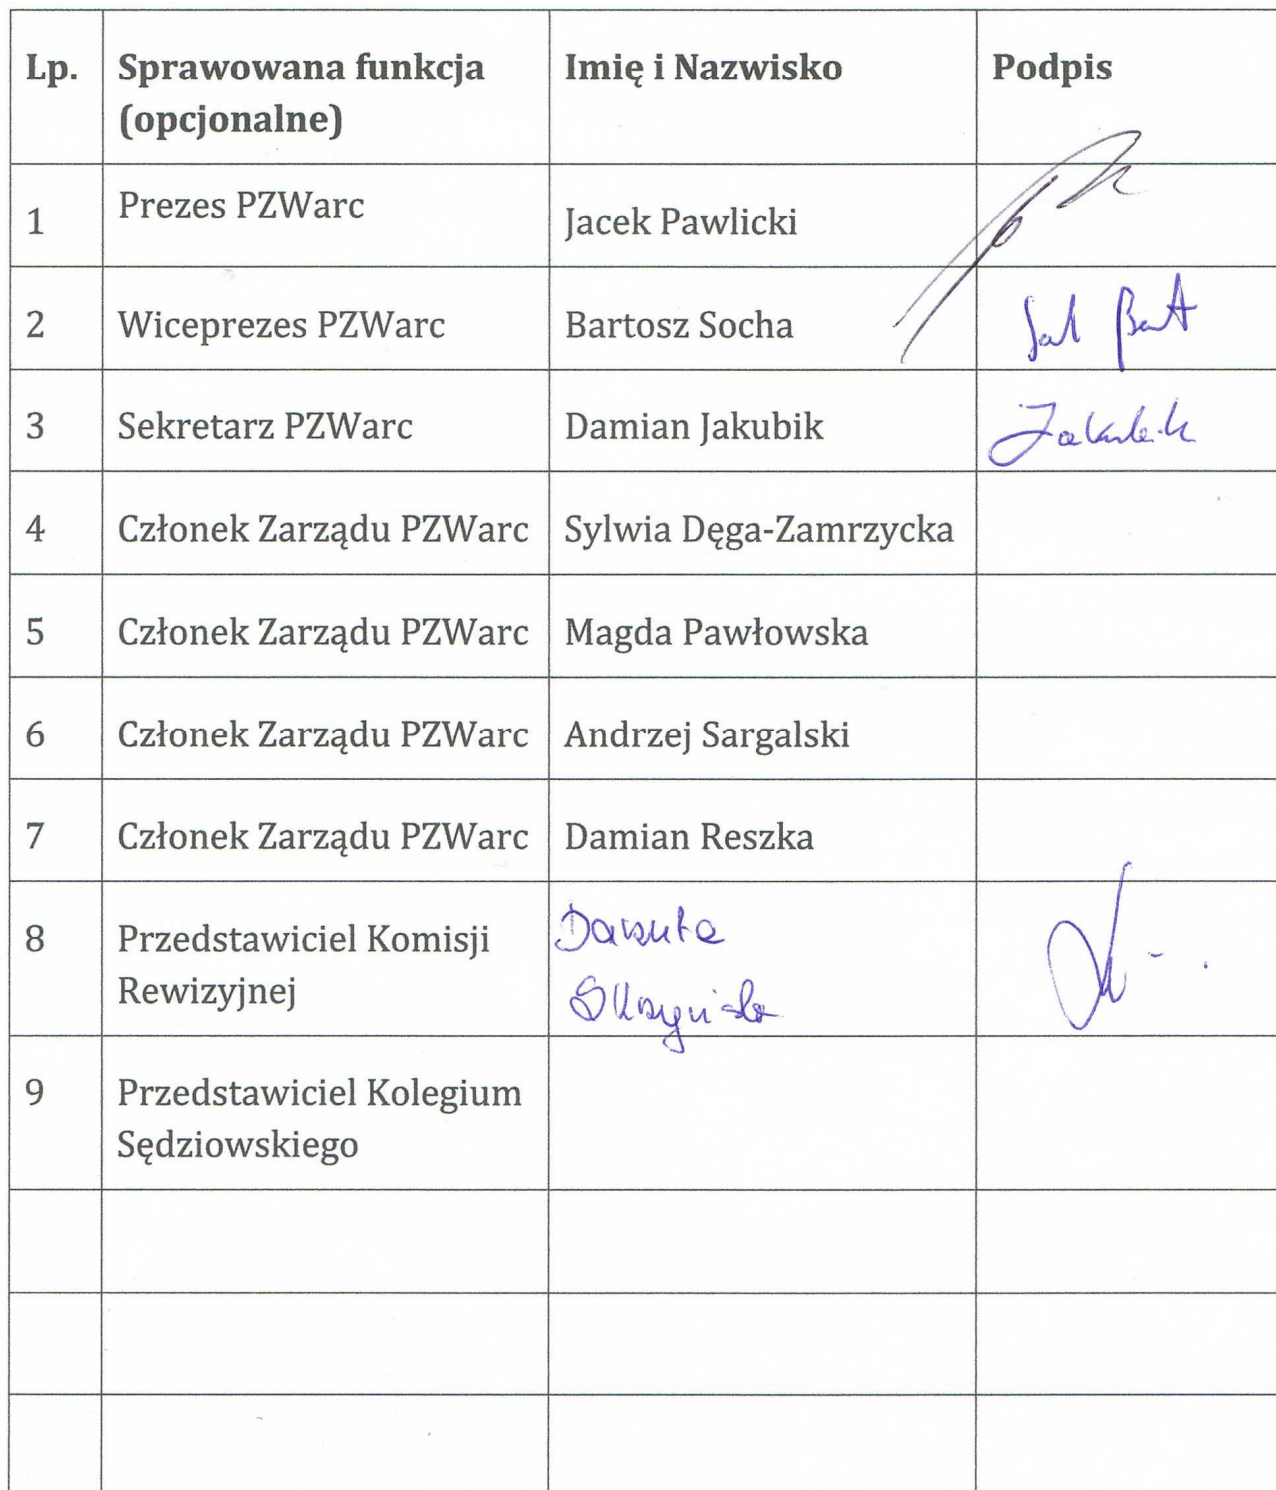 Lp. Sprawowana funkcja Imię i Nazwisko Podpis
(opcjonalne)
1 Prezes PZWarc Jacek Pawlicki
2 Wiceprezes PZWarc Bartosz Socha
3 Sekretarz PZWarc Damian Jakubik Jakubik
4 Członek Zarządu PZWarc Sylwia Dęga-Zamrzycka
5 Członek Zarządu PZWarc Magda Pawłowska
6 Członek Zarządu PZWarc Andrzej Sargalski
7 Członek Zarządu PZWarc Damian Reszka
8 Przedstawiciel Komisji Danuta
Rewizyjnej
9 Przedstawiciel Kolegium
Sędziowskiego